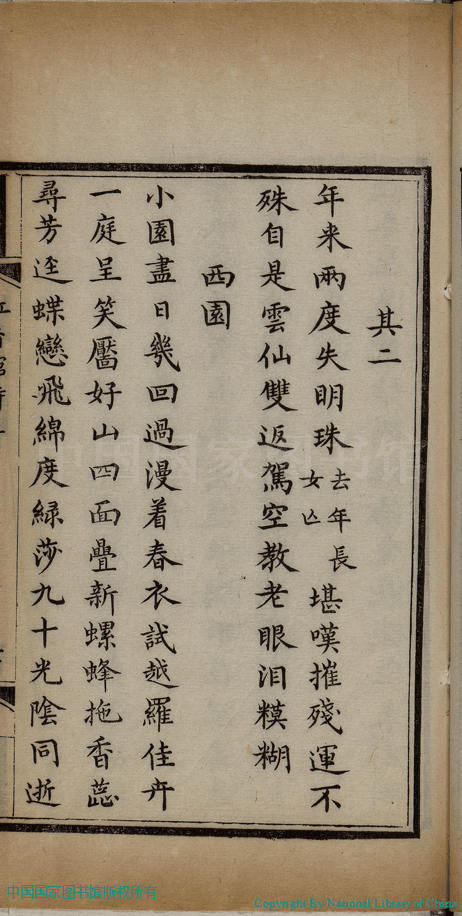 其二
年来兩度失明珠去年長女亾堪嘆摧殘運不
殊自是雲仙雙返駕空教老眼泪糢糊
西園
小園盡日幾回過漫着春衣試越羅佳卉
一庭呈笑靨好山四面疊新螺蜂拖香蕋
尋芳迳蝶戀飛綿度緑莎九十光陰同逝
中国国家图书馆
中国国家图书馆版权所有
Copyright By National Library of China